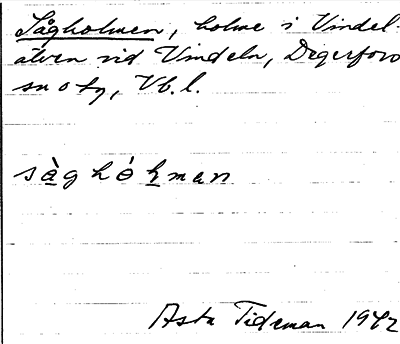 Sågholmen, holme i Vindel-
älven vid Vindeln, Degerfors
sn o tg, Vb. l.
sàghól̥man
Asta Tideman 1942